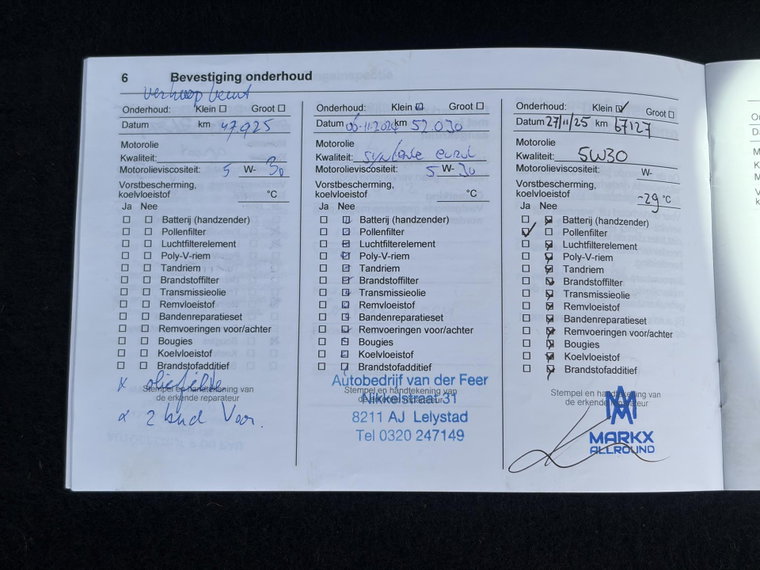 6 Bevestiging onderhoud
verkoop beurt
Onderhoud: Klein ☐ Groot ☐
Datum km 47925
Motorolie
Kwaliteit:
Motorolieviscositeit: 5 W- 30
Vorstbescherming,
koelvloeistof °C
Ja Nee
Batterij (handzender)
Pollenfilter
Luchtfilterelement
Poly-V-riem
Tandriem
Brandstoffilter
Transmissieolie
Remvloeistof
Bandenreparatieset
Remvoeringen voor/achter
Bougies
Koelvloeistof
Brandstofadditief
Stempel en handtekening van
de erkende reparateur
x oliefilter
x 2 band Voor.
Onderhoud: Klein ☑ Groot ☐
Datum 06-11-2024 km 52.030
Motorolie
Kwaliteit:
Motorolieviscositeit: 5 W- 30
Vorstbescherming,
koelvloeistof °C
Ja Nee
Batterij (handzender)
Pollenfilter
Luchtfilterelement
Poly-V-riem
Tandriem
Brandstoffilter
Transmissieolie
Remvloeistof
Bandenreparatieset
Remvoeringen voor/achter
Bougies
Koelvloeistof
Brandstofadditief
Autobedrijf van der Feer
Stempel en handtekening van
Nikkelstraat 31
8211 AJ Lelystad
Tel 0320 247149
Onderhoud: Klein ☑ Groot ☐
Datum 27/11/25 km 67127
Motorolie
Kwaliteit: 5W30
Motorolieviscositeit: W-
Vorstbescherming,
koelvloeistof -29 °C
Ja Nee
Batterij (handzender)
Pollenfilter
Luchtfilterelement
Poly-V-riem
Tandriem
Brandstoffilter
Transmissieolie
Remvloeistof
Bandenreparatieset
Remvoeringen voor/achter
Bougies
Koelvloeistof
Brandstofadditief
Stempel en handtekening van
de erkende reparateur
MARKX
ALLROUND